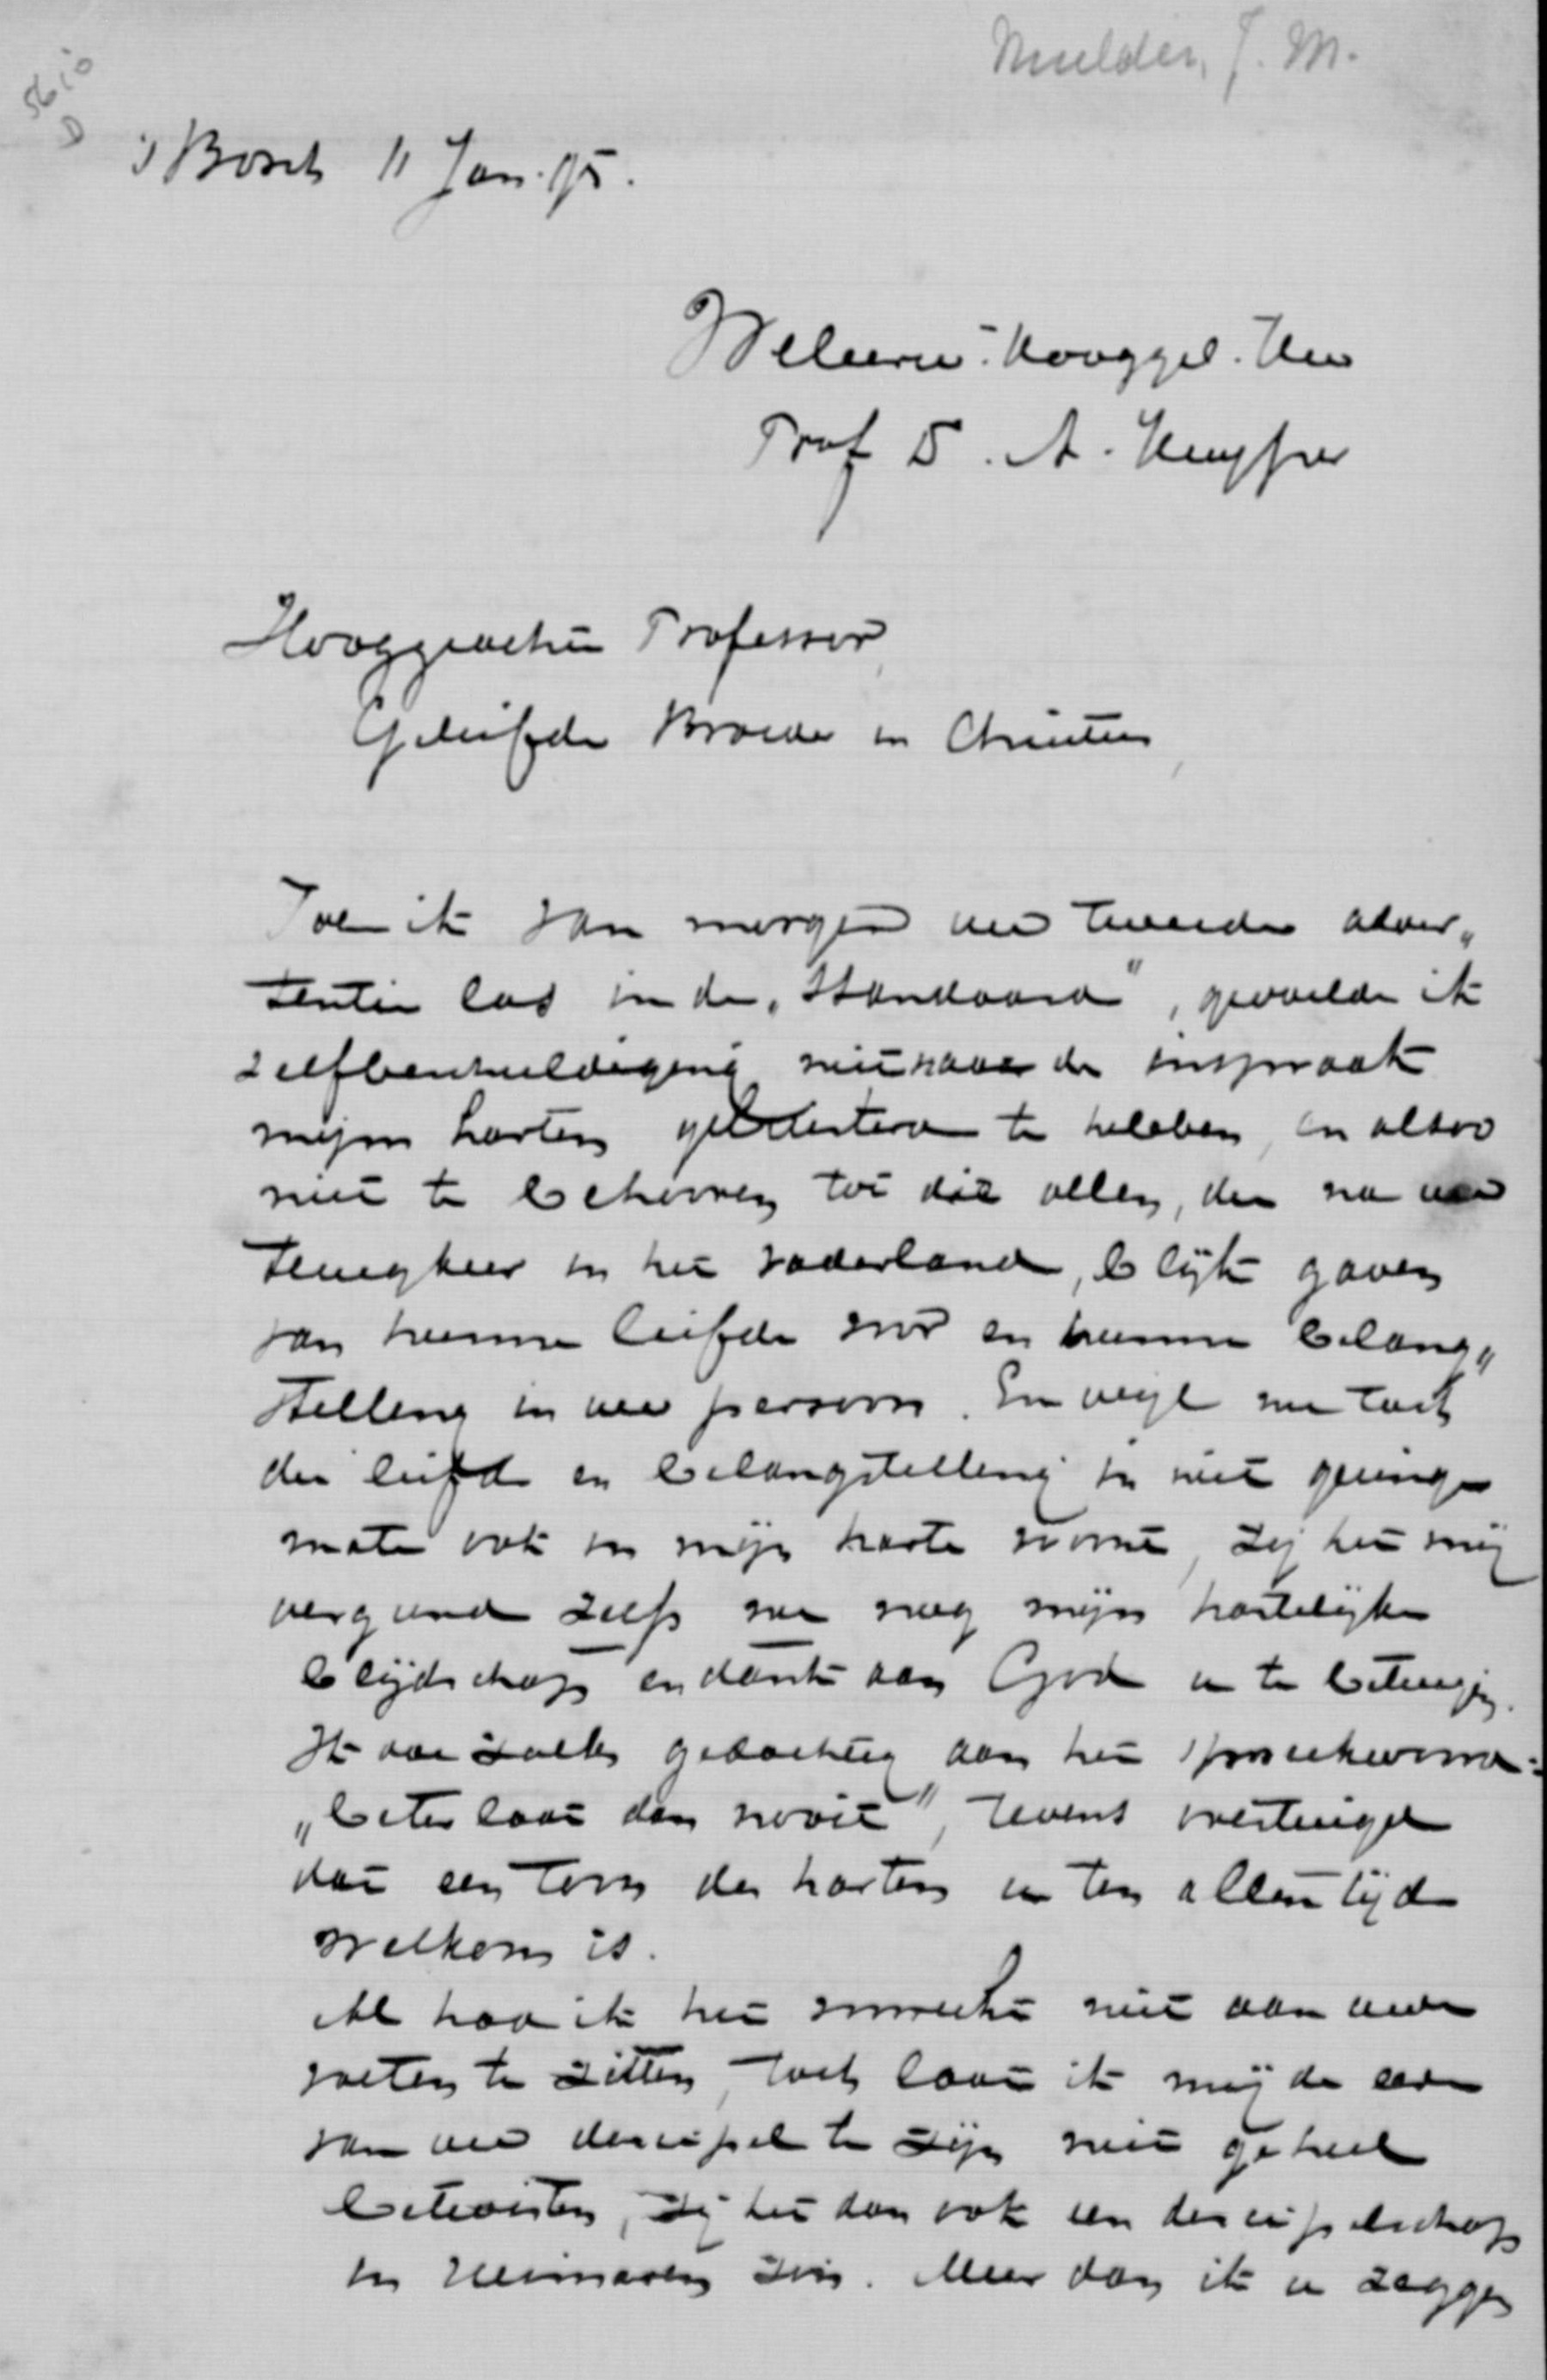 Mulder, J. M.
5610
D
's Bosch 11 Jan. 95.
Weleerw. Hooggel. Heer
Prof Dr. A. Kuyper
Hooggeachte Professor,
Geliefde Broeder in Christus,
Toen ik van morgen uw tweede adver„
tentie las in de „Standaard", gevoelde ik
zelfbeschuldiging niet naar de inspraak
mijns harten geluisterd te hebben, en alzoo
niet te behooren tot die allen, die na uw
terugkeer in het vaderland, blijk gaven
van hunne liefde voor en hunne belang„
stelling in uw persoon. En wijl nu toch
die liefde en belangstelling in niet geringe
mate ook in mijn harte woont, zij het mij
vergund zelfs nu nog mijn hartelijke
blijdschap en dank aan God u te betuigen.
Ik doe zulks gedachtig aan het spreekwoord:
„beter laat dan nooit", tevens overtuigd
dat een toon des harten u ten allen tijde
welkom is.
Al had ik het voorrecht niet aan uwe
voeten te zitten, toch laat ik mij de eere
van uw discipel te zijn niet geheel
betwisten, zij het dan ook een discipelschap
in ruimeren zin. Meer dan ik u zeggen